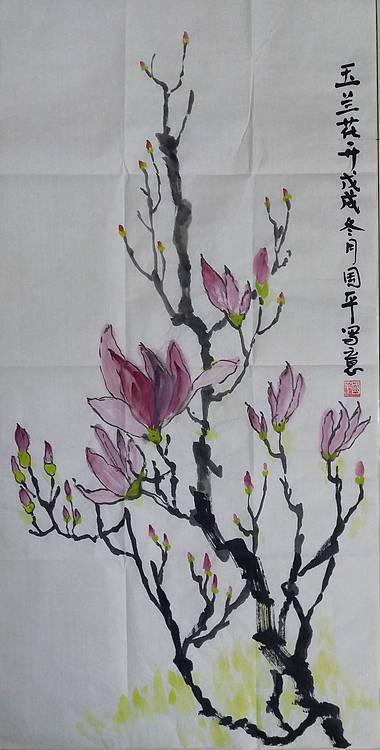 玉兰花开戊戌冬月周平写意